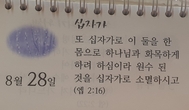 십자가
또 십자가로 이 둘을 한
몸으로 하나님과 화목하게
하려 하심이라 원수 된
것을 십자가로 소멸하시고
(엡 2:16)
8월 28일